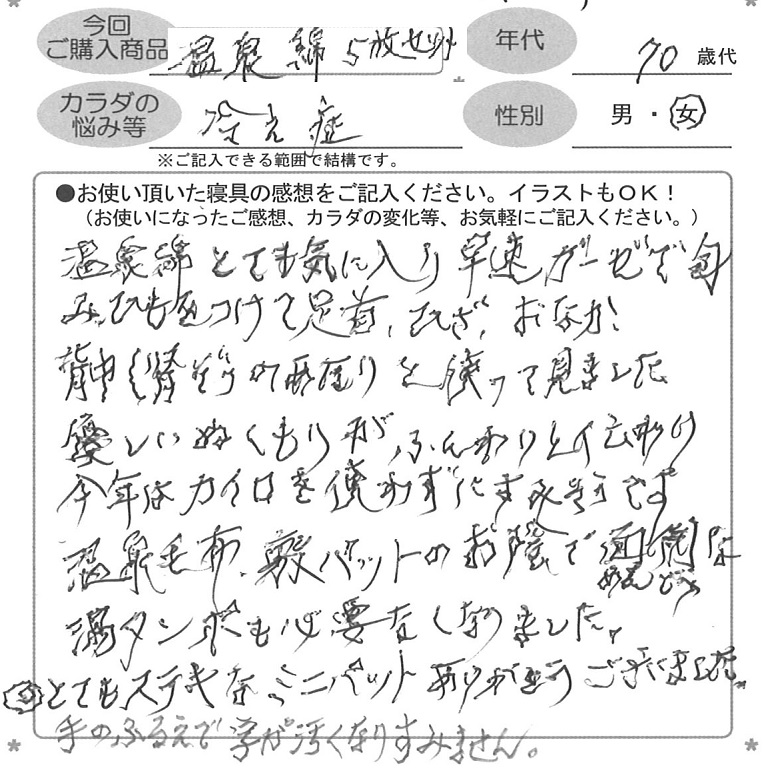 今回
ご購入商品 温泉綿 5枚セット
年代 70 歳代
カラダの
悩み等 冷え症
性別 男・女
※ご記入できる範囲で結構です。
●お使い頂いた寝具の感想をご記入ください。イラストもOK!
(お使いになったご感想、カラダの変化等、お気軽にご記入ください。)
温泉綿とても気に入り早速ガーゼで包
みひもをつけて足首、ひざ、おなか、
背中(腎ぞうの辺り)を使って見ました
優しいぬくもりがふんわりと伝わり
今年はカイロを使わずにすみそうです
温泉毛布、敷パットのお陰で面倒な
めんどう
湯タンポも必要なくなりました。
とてもステキなミニパットありがとうございました。
手のふるえで字が汚くなりすみません。